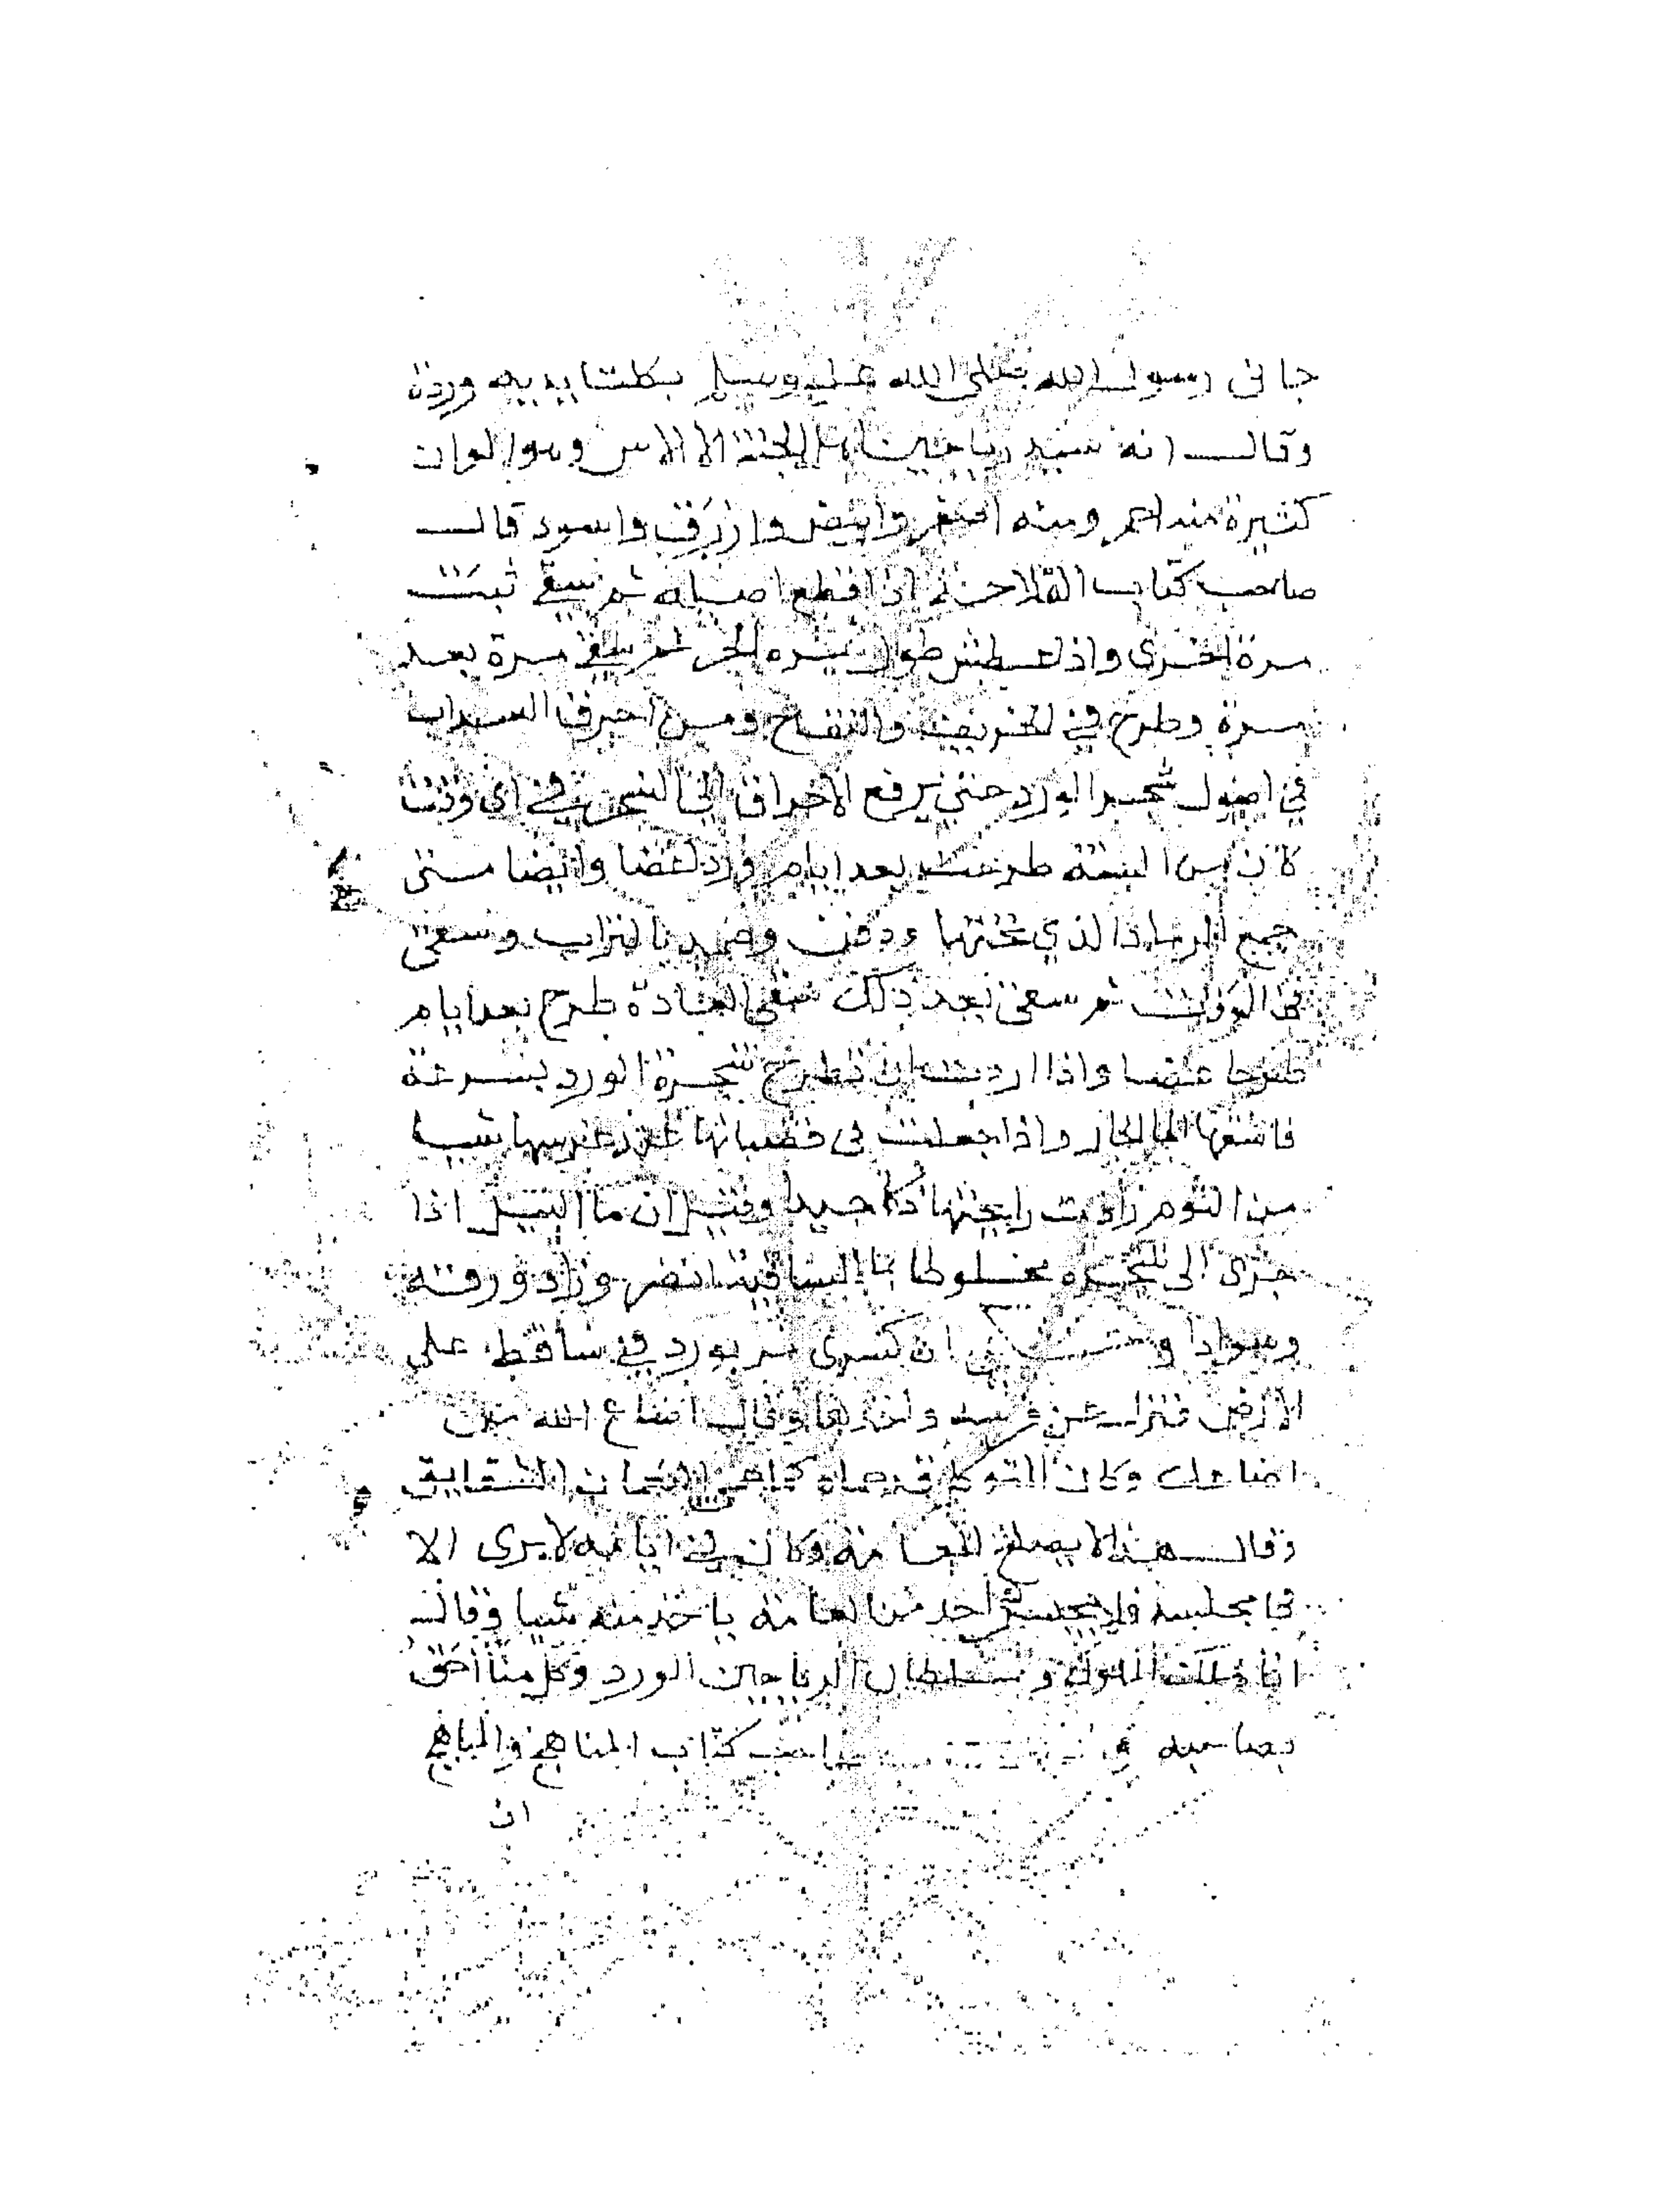 جانى رسول الله صلى الله عليه وسلم بكلتا يديه وردة
وقال انه سيد رياحين اهل الجنة الا الاس وهو الوان
كثيرة منه احمر ومنه اصفر وابيض وازرق واسود قال
صاحب كتاب الفلاحة اذا قطع اصله ثم سقى نبت
مرة اخرى واذا عطش طول شهره الحر ثم سقى مرة بعد
مرة وطرح في الخريف والتفاح ومن احرق السداب
في اصول شجر الورد حتى يرفع الاحراق الى الشجرة في اى وقت
كان من السنة طرحت بعد ايام وردا غضا وايضا متى
جمع الرماد الذي تحتها ودفن وضمد بالتراب وسقى
فى الوقت ثم سقى بعد ذلك سقى العادة طرح بعد ايام
طرحا غضا واذا اردت ان تطرح شجرة الورد بسرعة
فاسقها الما الحار واذا جعلت فى قضبانها عند غرسها شيا
من الثوم زادت رايحتها ذكا جيدا وقيل ان ما النيل اذا
جرى الى شجره مخلوطا بما الساقية انضر وزاد ورقه
وسوادا ان كسرى مر بورد في ساقط على
الارض فنزل عن فرسه واخذها وقال اضاع الله من
اضاعك وكان المتوكل قد حماه كما حمى النعمان الشقايق
وقال هذا لا يصلح للعامة وكان في ايامه لا يرى الا
فى مجلسه فلا يجسر احد من العامة ياخذ منه شيا وقال
انا ملك الملوك وسلطان الرياحين الورد وكل منا احق
بصاحبه صاحب كتاب المناهج والمباهج
ان